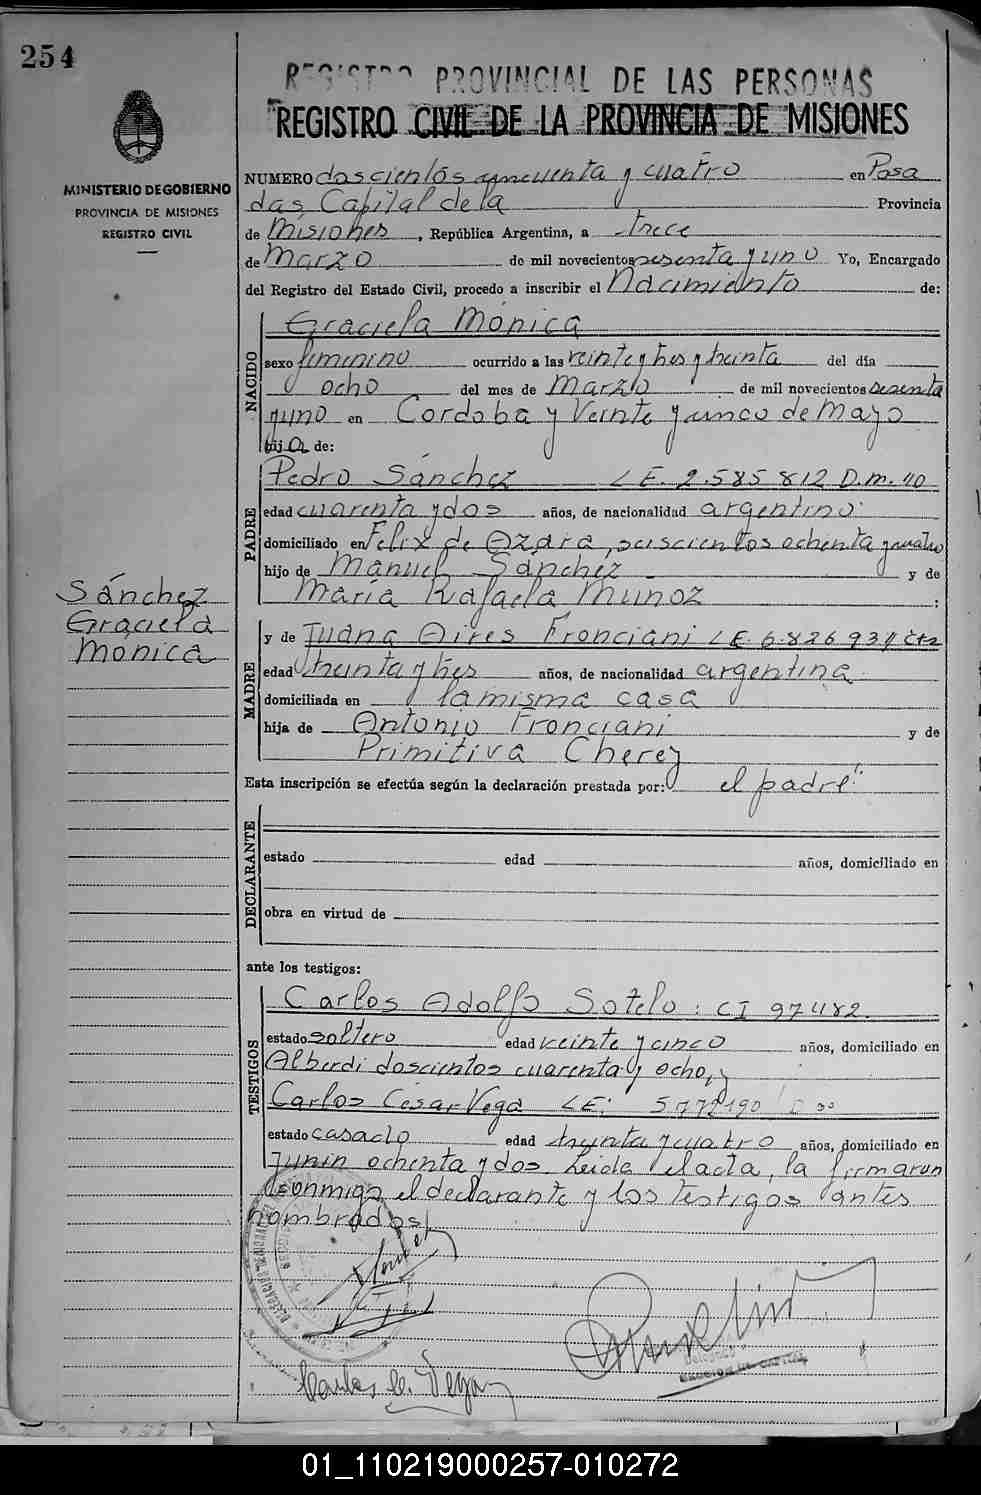 254
MINISTERIO DE GOBIERNO
PROVINCIA DE MISIONES
REGISTRO CIVIL
Sánchez
Graciela
Mónica
REGISTRO PROVINCIAL DE LAS PERSONAS
REGISTRO CIVIL DE LA PROVINCIA DE MISIONES
NUMERO doscientos cincuenta y cuatro en Posa
das Capital de la Provincia
de Misiones, República Argentina, a trece
de Marzo de mil novecientos sesenta y uno Yo, Encargado
del Registro del Estado Civil, procedo a inscribir el Nacimiento de:
NACIDO
Graciela Mónica
sexo femenino ocurrido a las veinte y tres y treinta del día
ocho del mes de Marzo de mil novecientos sesenta
y uno en Cordoba y Veinte y cinco de Mayo
hija de:
PADRE
Pedro Sánchez L E. 2.585.812 D.M. 40
edad cuarenta y dos años, de nacionalidad argentino
domiciliado en Felix de Azara, seiscientos ochenta y cuatro
hijo de Manuel Sánchez y de
María Rafaela Muñoz :
MADRE
y de Juana Aires Fronciani L E. 6.826.934
edad treinta y tres años, de nacionalidad argentina
domiciliada en la misma casa
hija de Antonio Fronciani y de
Primitiva Cherez
Esta inscripción se efectúa según la declaración prestada por: el padre
DECLARANTE
estado edad años, domiciliado en
obra en virtud de
ante los testigos:
TESTIGOS
Carlos Adolfo Sotelo: CI 97482
estado soltero edad veinte y cinco años, domiciliado en
Alberdi doscientos cuarenta y ocho, y
Carlos César Vega L E:
estado casado edad treinta y cuatro años, domiciliado en
Junin ochenta y dos. Leída el acta, la firmaron
conmigo el declarante y los testigos antes
nombrados
Carlos C. Vega
01_110219000257-010272